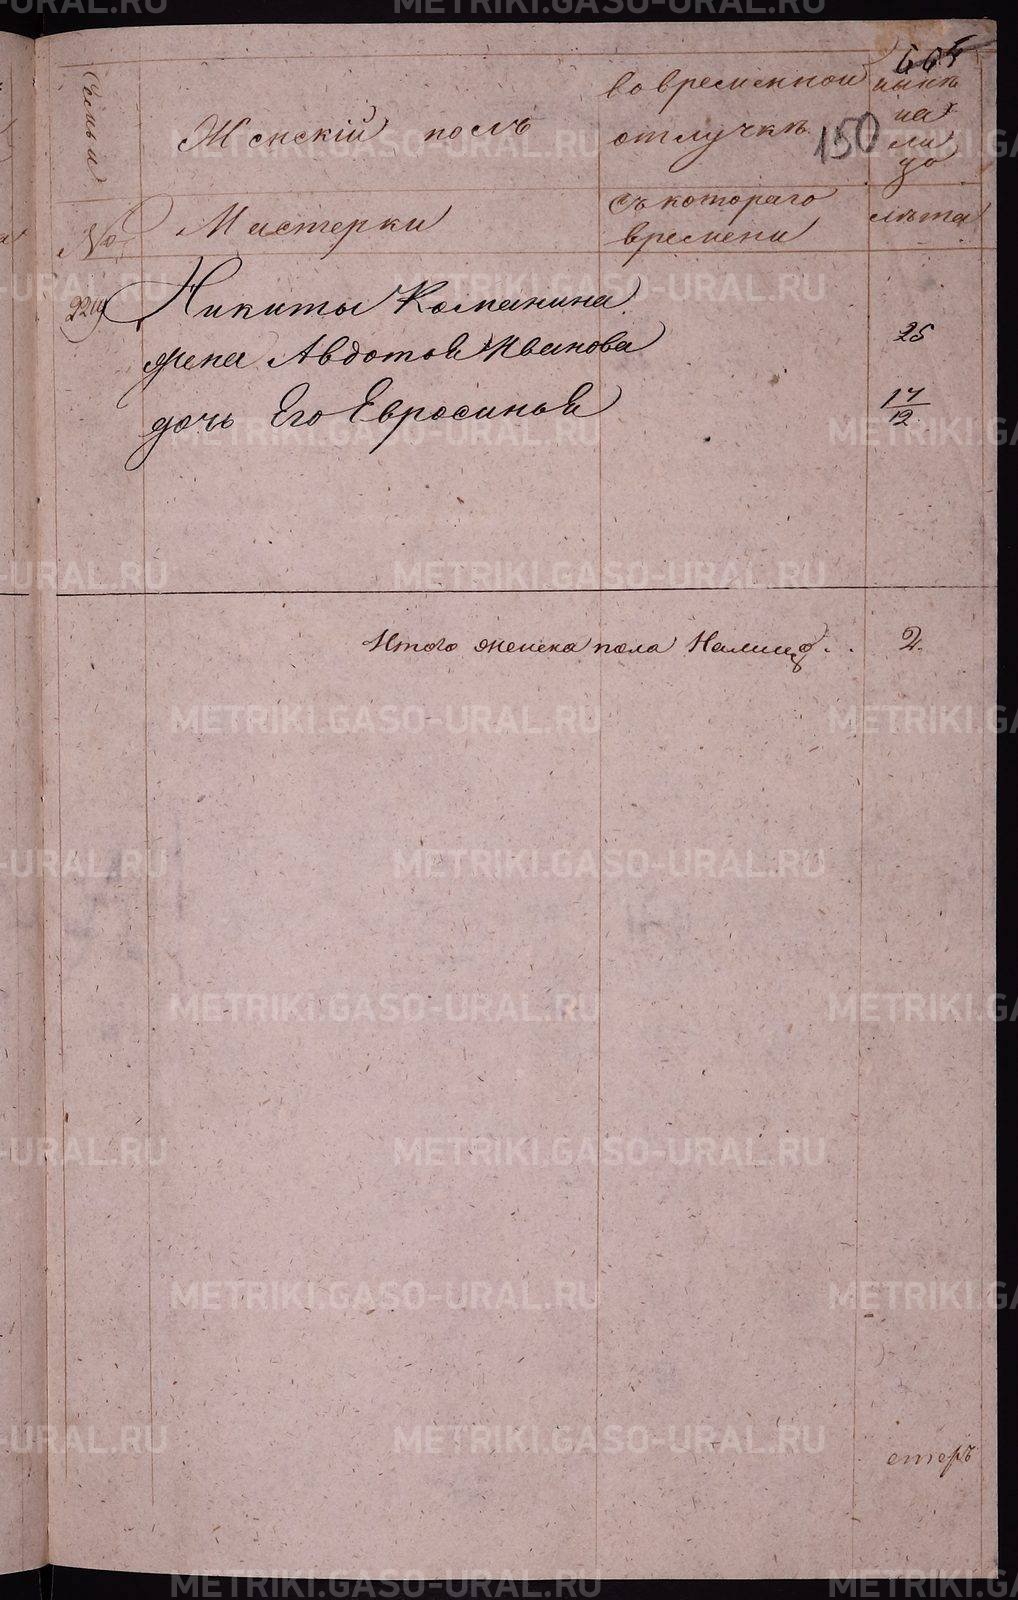 Семьи
Женскій полъ
во временной
отлучкѣ
150
нынѣ
на
ли
цо
№
Мастерки
съ котораго
времени
лѣта
Никиты Команина
жена Авдотья Иванова
25
дочь Его Евросинья
17/12
Итого женска пола Налицо . .
2.
METRIKI.GASO-URAL.RU